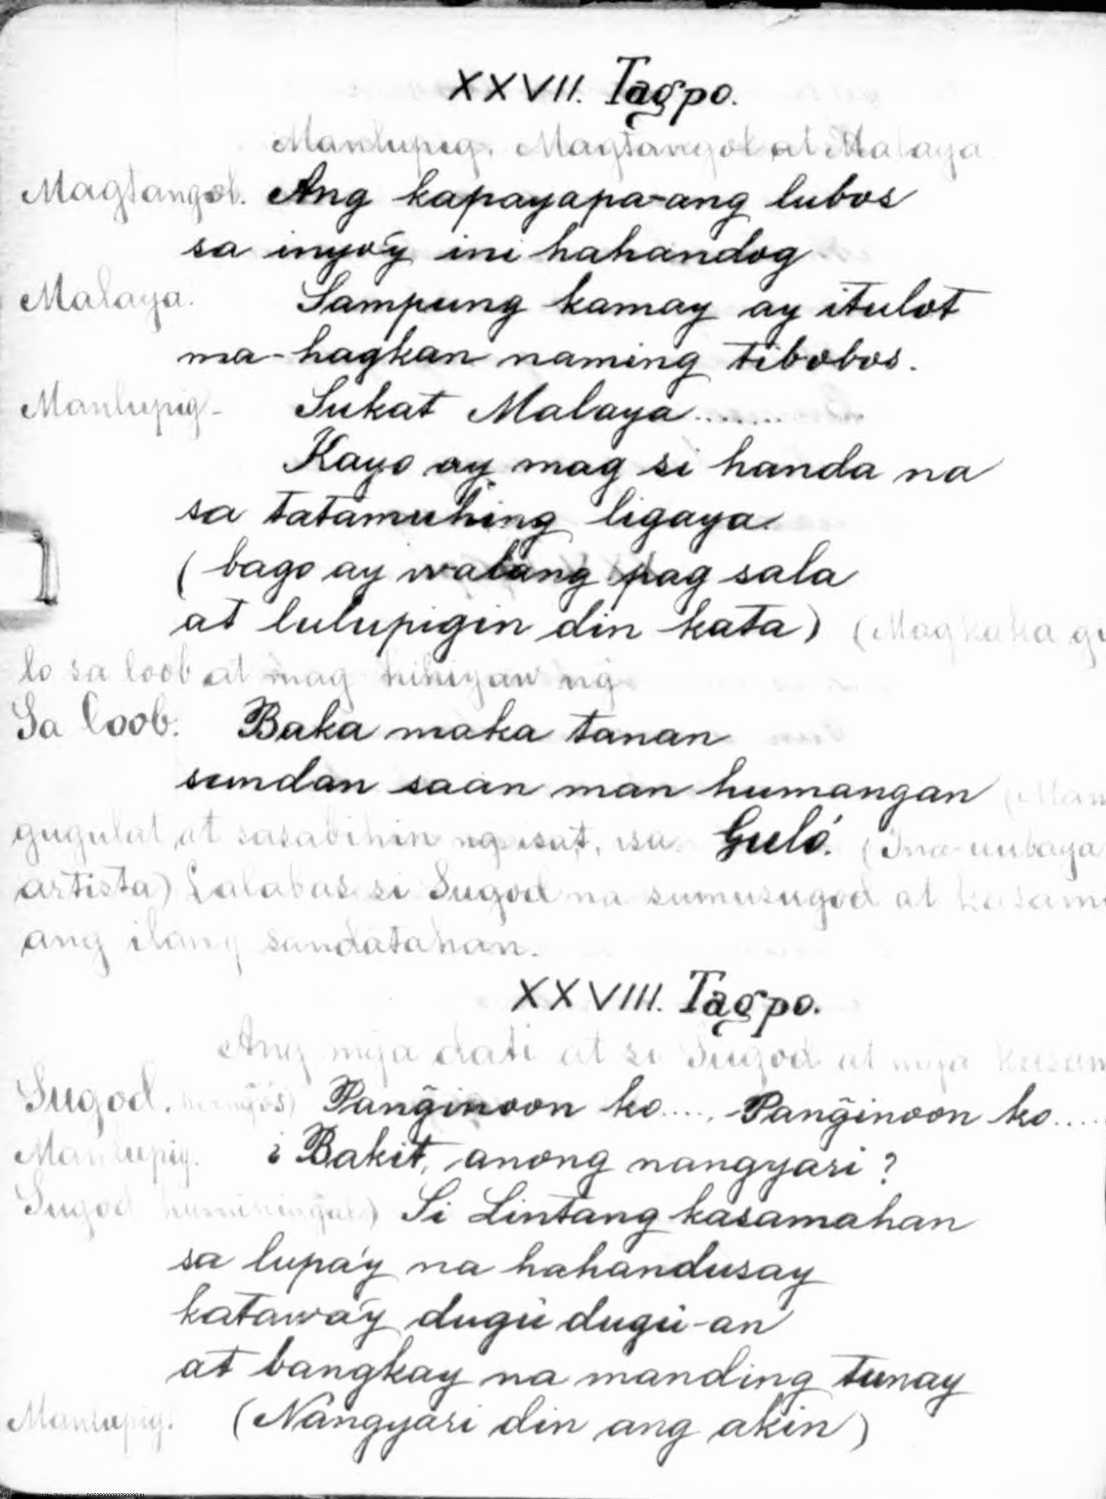 XXVII. Tagpo.
Manlupig, Magtangol at Malaya
Magtangol. Ang kapayapa-ang lubos
sa inyo'y ini hahandog
Malaya. Sampung kamay ay itulot
ma-hagkan naming tibobos.
Manlupig- Sukat Malaya........
Kayo ay mag si handa na
sa tatamuhing ligaya.
( bago ay walang pag sala
at lulupigin din kata) (Magkaka gu
lo sa loob at mag hihiyaw ng
Sa loob: Baka maka tanan
sundan saan man humangan (Man
gugulat at sasabihin ng isa't, isa. Guló. (Ina-uubaya
artista) Lalabas si Sugod na sumusugod at kasam
ang ilang sandatahan.
XXVIII. Tagpo.
Ang mga dati at si Sugod at mga kasam
Sugod. Pang̃inoon ko...., Pang̃inoon ko.....
Manlupig. ¿ Bakit, anong nangyari ?
Sugod Si Lintang kasamahan
sa lupa'y na hahandusay
katawa'y dugú dugú-an
at bangkay na manding tunay
Manlupig. (Nangyari din ang akin)